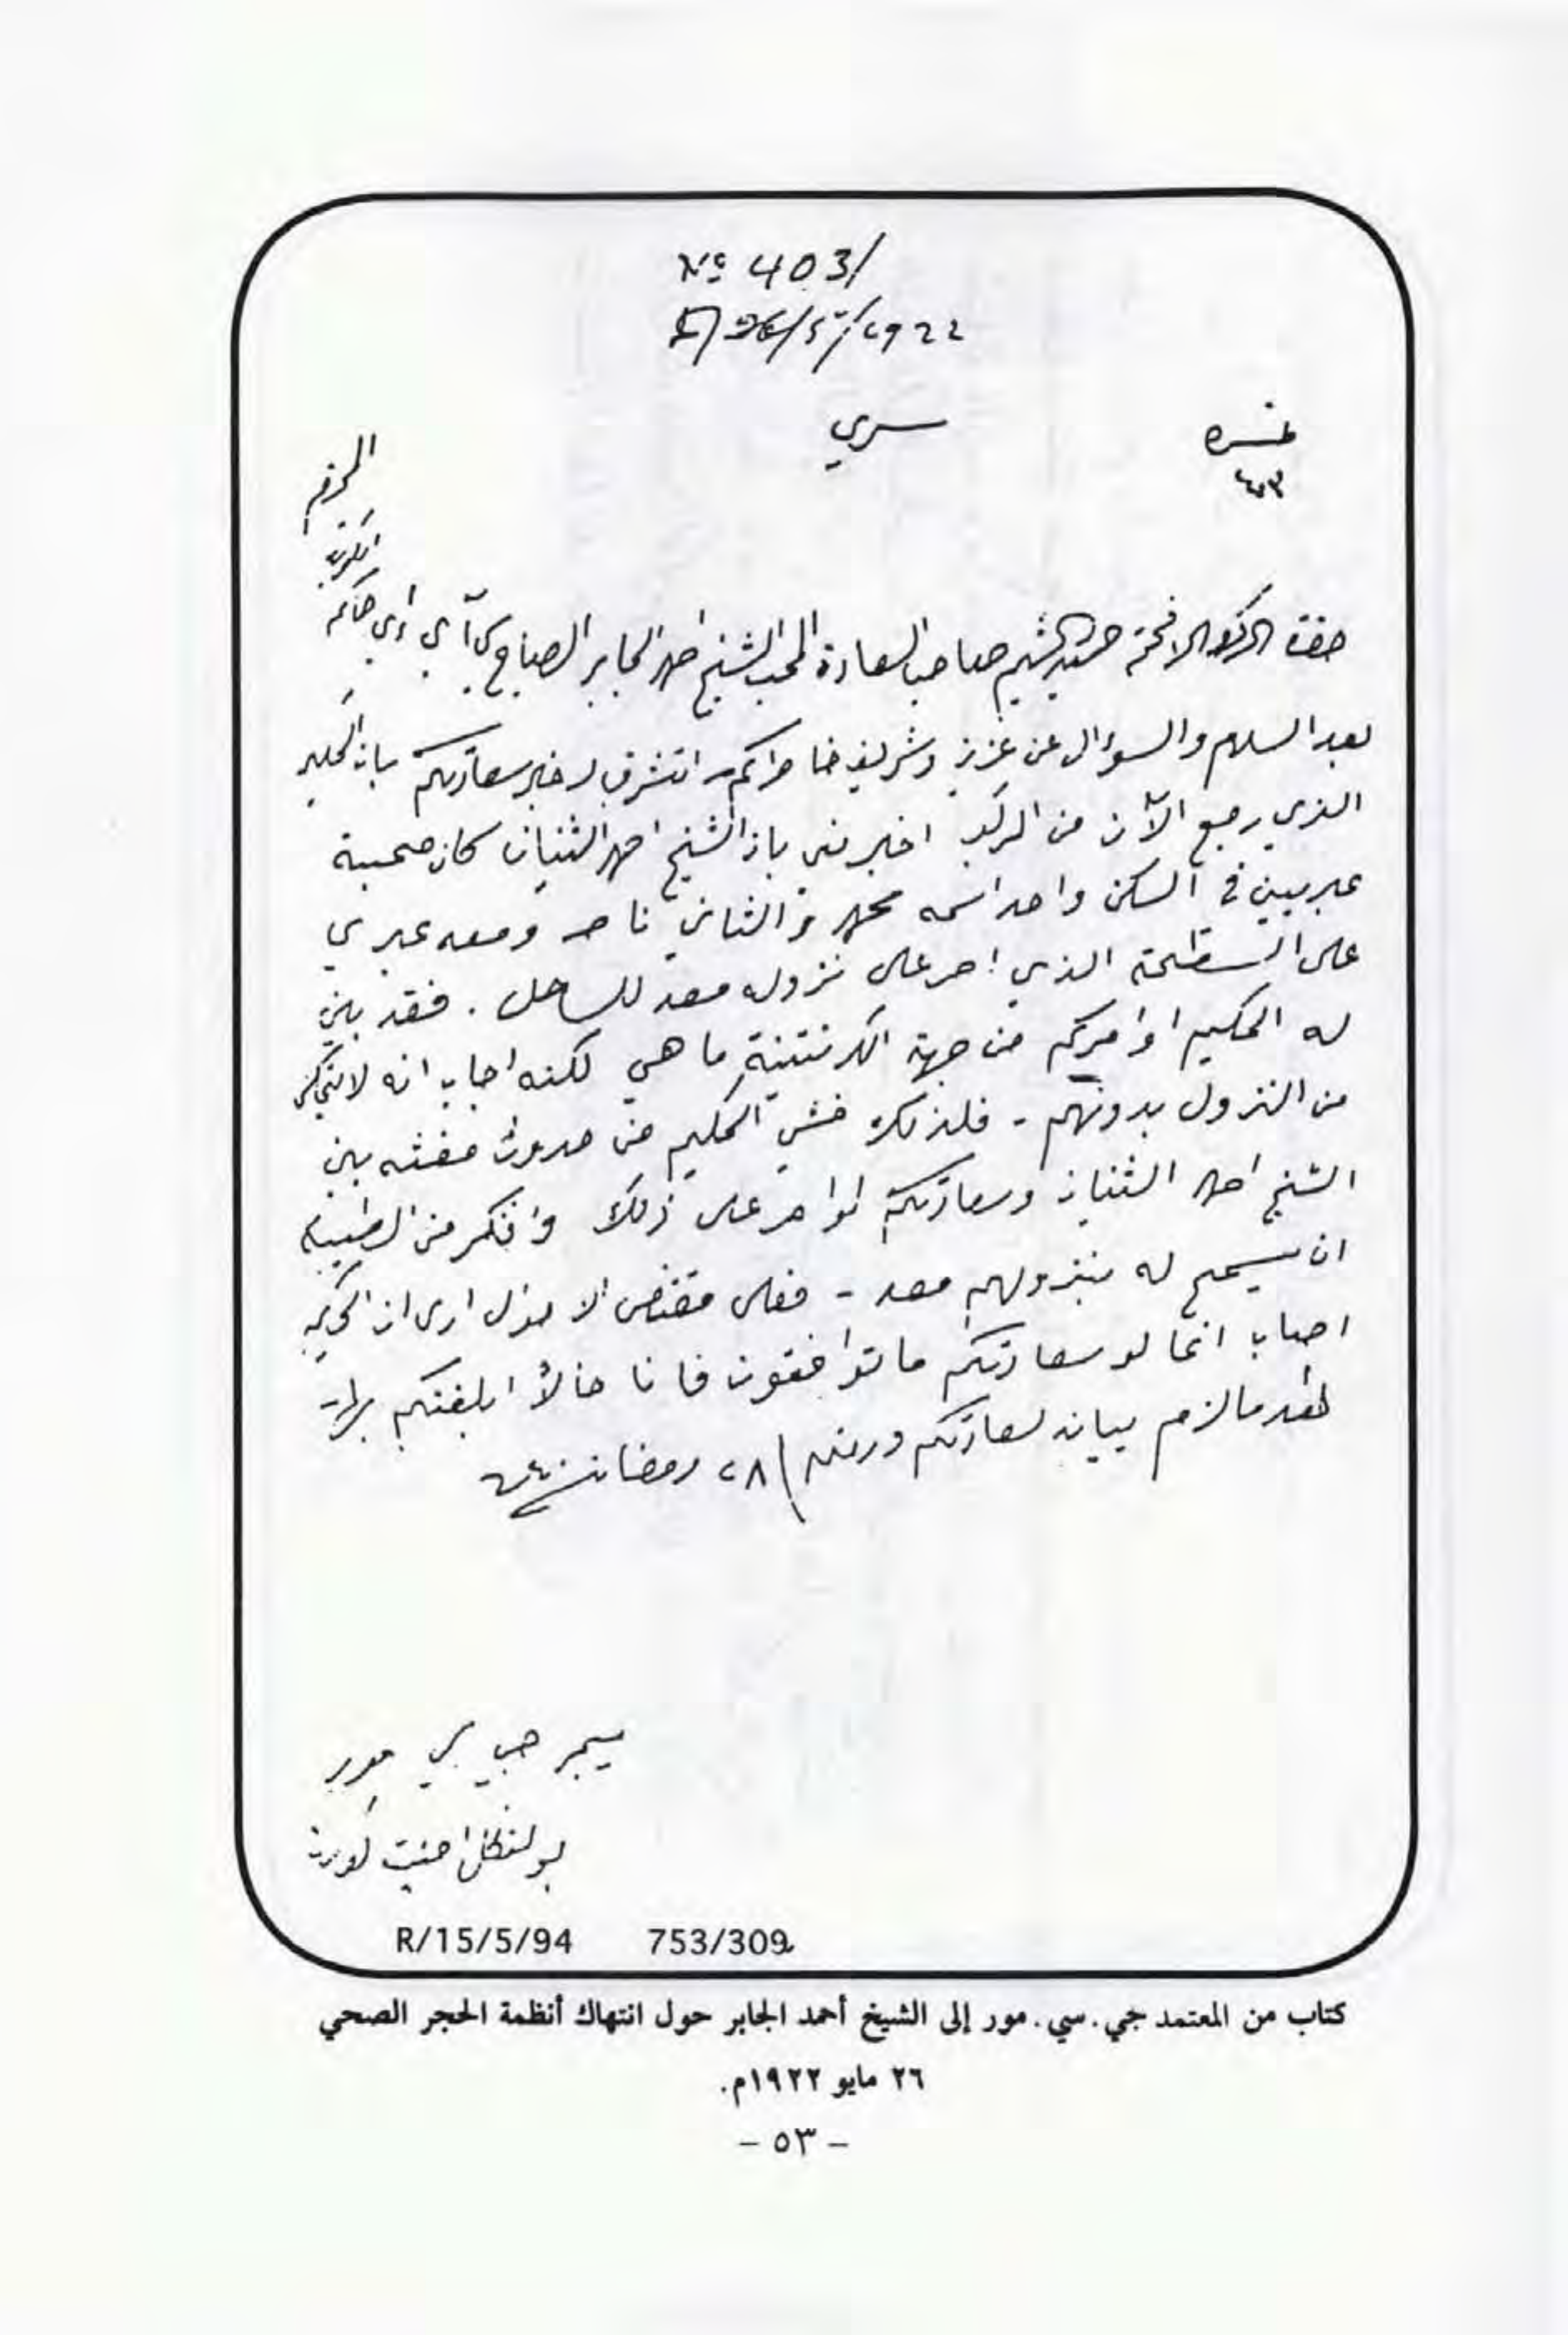 No 403/
26/5/1922
سري
نمره
٤٠٣
المحترم
الكويت
حضرة الافخم حميد الشيم صاحب السعادة المحب الشيخ احمد الجابر الصباح سي آي إي حاكم
بعد السلام والسؤال عن عزيز وشريف خاطركم - اتشرف لاخبر سعادتكم بان الحكيم
الذي رجع الآن من المركب اخبرني بان الشيخ احمد الثنيان كان صحبته
عبريين في السكن واحد اسمه محمد والثاني ناصر ومعه عبري
على السطحة الذي اصر على نزوله معه للساحل . فقد بين
له الحكيم اوامركم من جهة الكرنتينة ما هي لكنه اجاب انه لا يتمكن
من النزول بدونهم - فلذلك خشي الحكيم من حدوث بين
الشيخ احمد الثنيان وسعادتكم لو اصر على ذلك وافتكر من الطيب
ان يسمح له بنزولهم معه - فعلى مقتضى الاحوال ارى ان الحكيم
اصاب انما لو سعادتكم ما توافقون فانا حالاً ابلغتكم
هذا ما لزم بيانه لسعادتكم ودمتم ٢٨ رمضان سنة ٤٠
ميجر جي سي مور
بولتكل اجنت كويت
R/15/5/94 753/309
كتاب من المعتمد جي.سي.مور إلى الشيخ أحمد الجابر حول انتهاك أنظمة الحجر الصحي
٢٦ مايو ١٩٢٢م.
- ٥٣ -